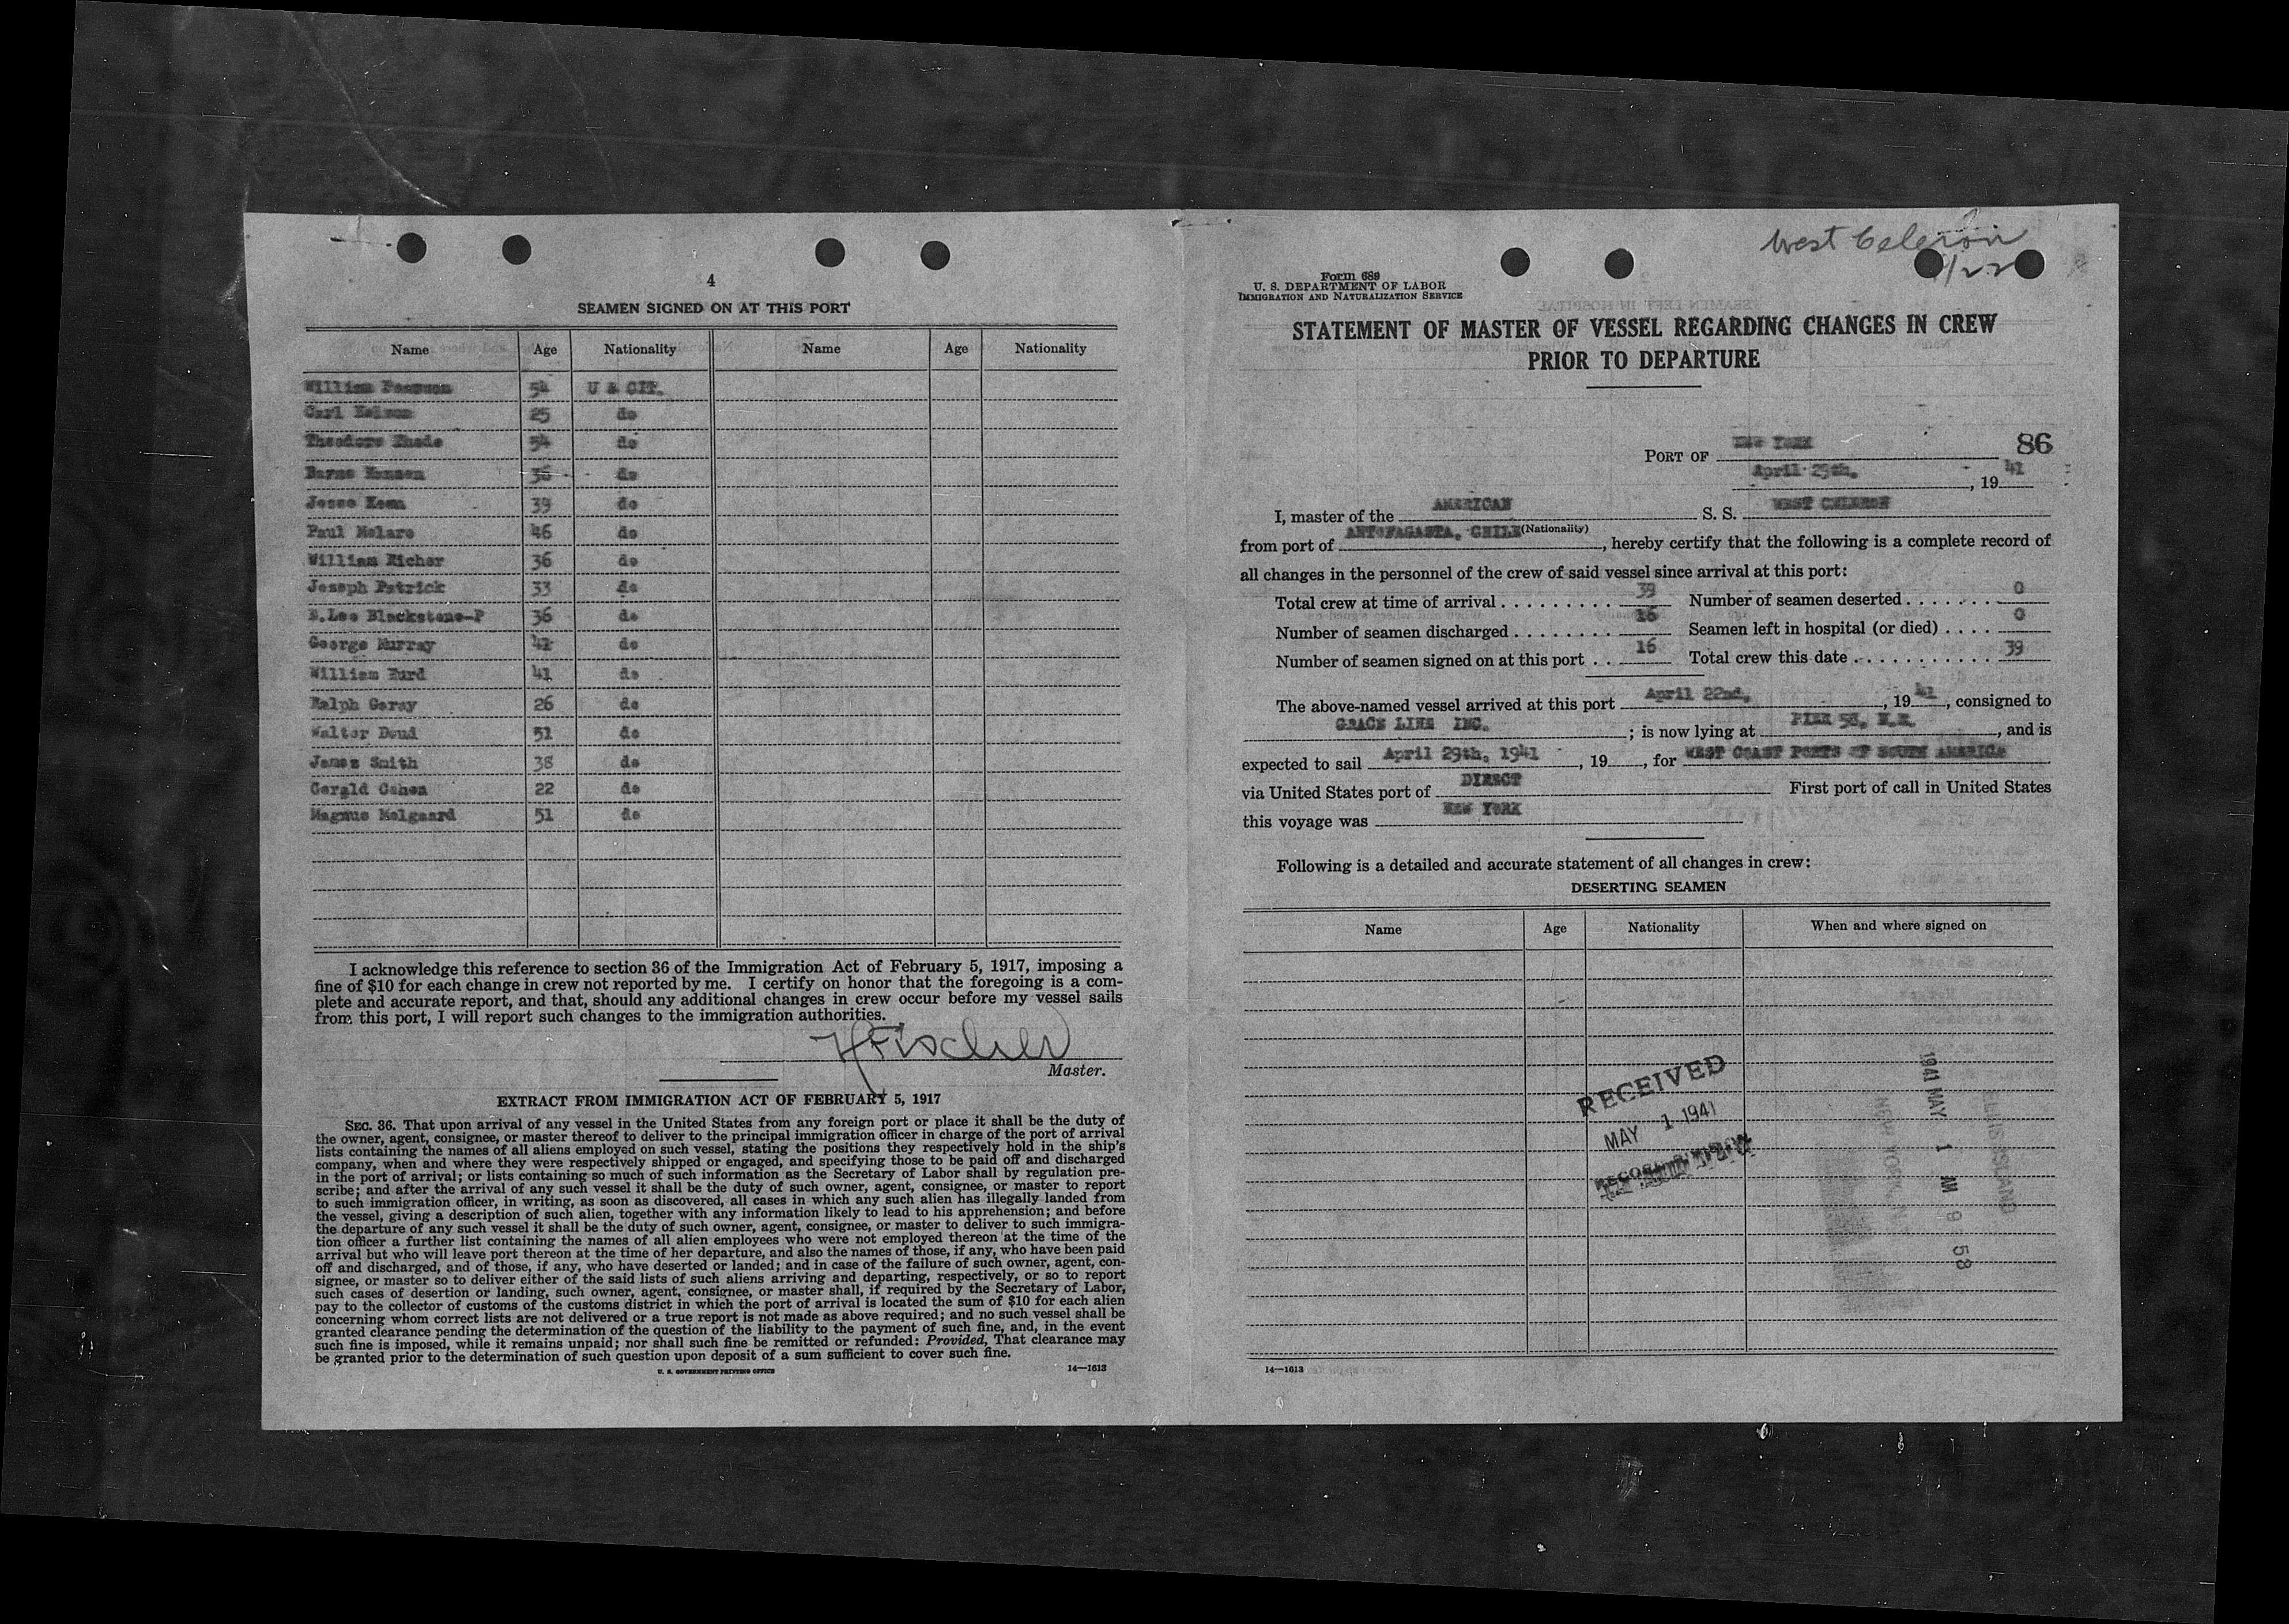 4
SEAMEN SIGNED ON AT THIS PORT
Name Age Nationality Name Age Nationality
William 54 U S CIT.
Carl Nelson 25 do
Theodore Rhode 54 do
Hansen 36 do
Jesse Kean 39 do
Paul Melaro 46 do
William Richer 36 do
Joseph Patrick 33 do
N.Lee Blackstone-P 36 do
George Murray 42 do
William Hurd 41 do
Ralph Garay 26 do
Walter Doud 51 do
James Smith 38 do
Gerald Cohen 22 do
Magnus Molgaard 51 do
I acknowledge this reference to section 36 of the Immigration Act of February 5, 1917, imposing a
fine of $10 for each change in crew not reported by me. I certify on honor that the foregoing is a com-
plete and accurate report, and that, should any additional changes in crew occur before my vessel sails
from this port, I will report such changes to the immigration authorities.
H Fischer
Master.
EXTRACT FROM IMMIGRATION ACT OF FEBRUARY 5, 1917
SEC. 36. That upon arrival of any vessel in the United States from any foreign port or place it shall be the duty of
the owner, agent, consignee, or master thereof to deliver to the principal immigration officer in charge of the port of arrival
lists containing the names of all aliens employed on such vessel, stating the positions they respectively hold in the ship's
company, when and where they were respectively shipped or engaged, and specifying those to be paid off and discharged
in the port of arrival; or lists containing so much of such information as the Secretary of Labor shall by regulation pre-
scribe; and after the arrival of any such vessel it shall be the duty of such owner, agent, consignee, or master to report
to such immigration officer, in writing, as soon as discovered, all cases in which any such alien has illegally landed from
the vessel, giving a description of such alien, together with any information likely to lead to his apprehension; and before
the departure of any such vessel it shall be the duty of such owner, agent, consignee, or master to deliver to such immigra-
tion officer a further list containing the names of all alien employees who were not employed thereon at the time of the
arrival but who will leave port thereon at the time of her departure, and also the names of those, if any, who have been paid
off and discharged, and of those, if any, who have deserted or landed; and in case of the failure of such owner, agent, con-
signee, or master so to deliver either of the said lists of such aliens arriving and departing, respectively, or so to report
such cases of desertion or landing, such owner, agent, consignee, or master shall, if required by the Secretary of Labor,
pay to the collector of customs of the customs district in which the port of arrival is located the sum of $10 for each alien
concerning whom correct lists are not delivered or a true report is not made as above required; and no such vessel shall be
granted clearance pending the determination of the question of the liability to the payment of such fine, and, in the event
such fine is imposed, while it remains unpaid; nor shall such fine be remitted or refunded: Provided, That clearance may
be granted prior to the determination of such question upon deposit of a sum sufficient to cover such fine.
U. S. GOVERNMENT PRINTING OFFICE 14—1613
West Celeron
4/22
Form 689
U. S. DEPARTMENT OF LABOR
IMMIGRATION AND NATURALIZATION SERVICE
STATEMENT OF MASTER OF VESSEL REGARDING CHANGES IN CREW
PRIOR TO DEPARTURE
86
PORT OF NEW YORK
April 29th, , 19 41
I, master of the AMERICAN S. S. WEST CELERON
(Nationality)
from port of ANTOFAGASTA, CHILE , hereby certify that the following is a complete record of
all changes in the personnel of the crew of said vessel since arrival at this port:
Total crew at time of arrival . . . . . . . . . 39 Number of seamen deserted . . . . . . . 0
Number of seamen discharged . . . . . . . . 16 Seamen left in hospital (or died) . . . . 0
Number of seamen signed on at this port . . 16 Total crew this date . . . . . . . . . . . . 39
The above-named vessel arrived at this port April 22nd, , 19 41 , consigned to
GRACE LINE INC. ; is now lying at PIER 58, N.R. , and is
expected to sail April 29th, 1941 , 19 , for WEST COAST PORTS OF SOUTH AMERICA
via United States port of DIRECT First port of call in United States
this voyage was NEW YORK
Following is a detailed and accurate statement of all changes in crew:
DESERTING SEAMEN
Name Age Nationality When and where signed on
RECEIVED
MAY 1 1941
RECORD DIVISION
1941 MAY 1 AM 9 58
ELLIS ISLAND
NEW YORK
14—1613